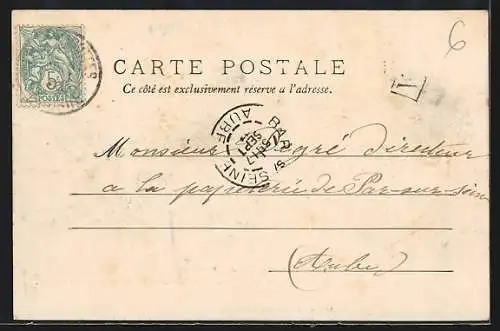 6
5c
CARTE POSTALE
Ce côté est exclusivement réservé a l'adresse.
BAR SEINE
AUBE
SEPT
Monsieur Legré directeur
a la papeterie de Bar-sur-Seine
(Aube)